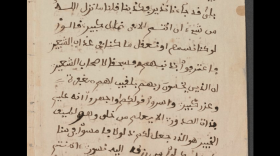 بلى قد جاءنا نذير فكذبنا وقلنا ما نزل الله
من شيء ان انتم الا في ضلل كبير وقالوا
لو كنا نسمع او نعقل ما كنا في اصحب السعير
فاعترفوا بذنبهم فسحقا لاصحب السعير
ان الذين يخشون ربهم بالغيب لهم مغفرة
واجر كبير واسروا قولكم او اجهروا به انه عليم
بذات الصدور الا يعلم من خلق وهو اللطيف
الخبير هو الذي جعل لكم الارض ذلولا فامشوا في منا
كبها وكلوا من رزقه واليه النشور